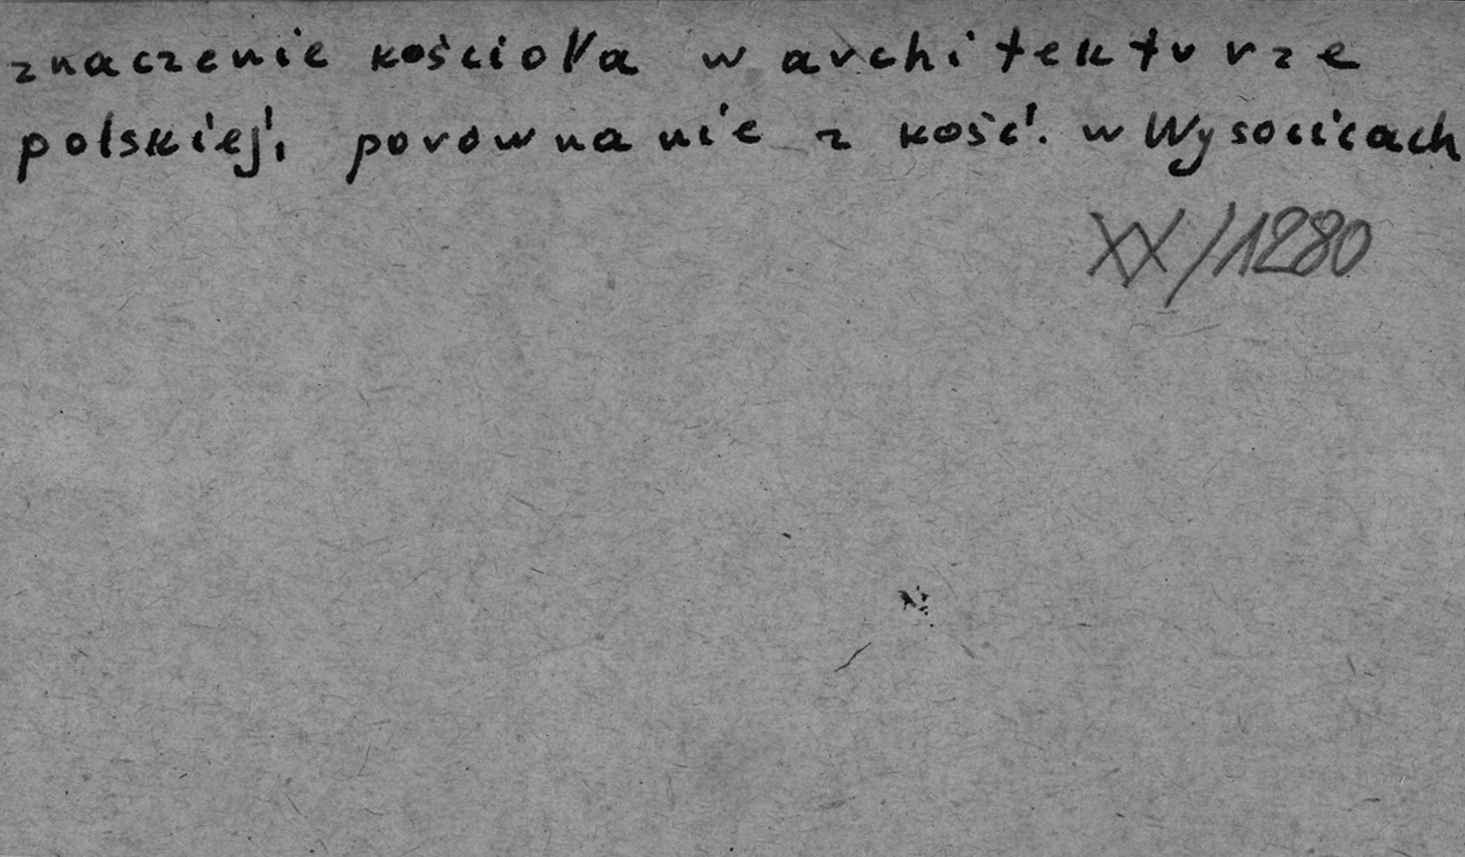 znaczenie kościoła w architekturze
polskiej, porównanie z kość. w Wysocicach
XX/1280